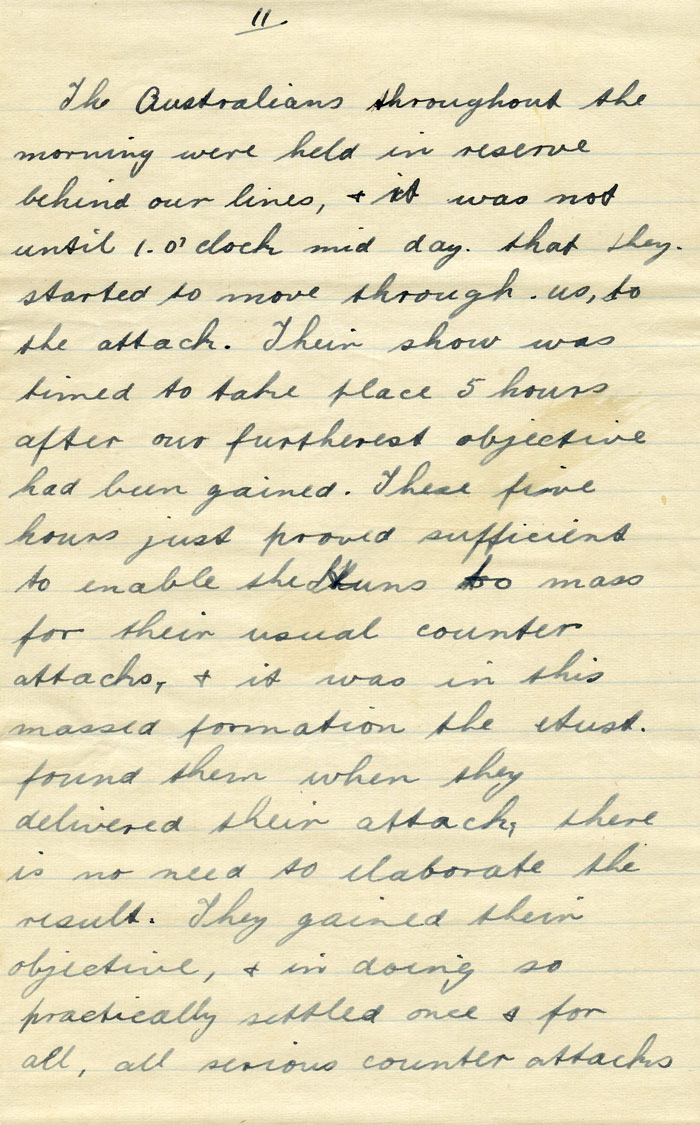 11
The Australians throughout the
morning were held in reserve
behind our lines, & it was not
until 1. O' clock mid day. that they.
started to move through. us, to
the attack. Their show was
timed to take place 5 hours
after our furtherest objective
had been gained. These five
hours just proved sufficient
to enable the Huns to mass
for their usual counter
attacks, & it was in this
massed formation the Aust.
found them when they
delivered their attack, there
is no need to elaborate the
result. They gained their
objective, & in doing so
practically settled once & for
all, all serious counter attacks